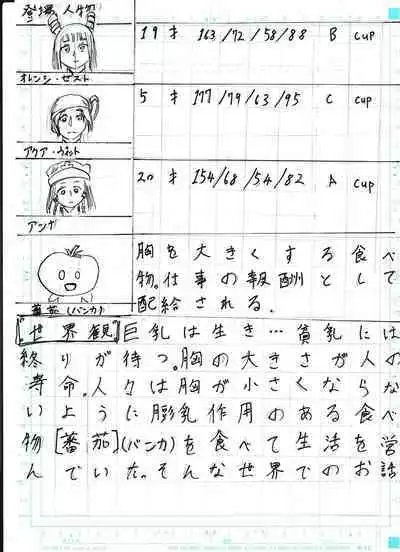 登場人物
19才 163/72/58/88 B cup
オレンジ・ゼスト
アクア・ウェット
20才 154/68/54/82 A cup
アンナ
胸を大きくする食べ
物。仕事の報酬として
配給される。
蕃茄(バンカ)
[世界観]巨乳は生き…貧乳には
終りが待つ。胸の大きさが人の
寿命。人々は胸が小さくならな
いように膨乳作用のある食べ
物[蕃茄](バンカ)を食べて生活を営
んでいた。そんな世界でのお話